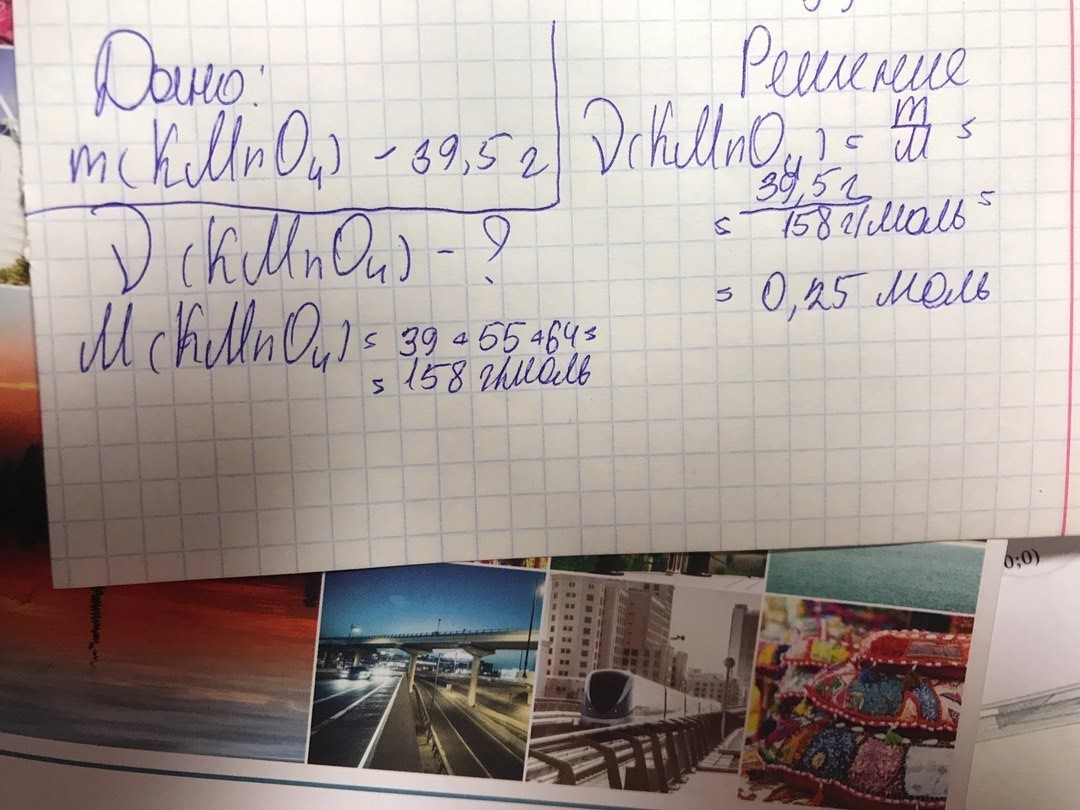 Дано:
m(KMnO₄) - 39,5 г
ν(KMnO₄) - ?
M(KMnO₄) = 39 + 55 + 64 =
= 158 г/моль
Решение
ν(KMnO₄) = m/M =
= 39,5 г / 158 г/моль =
= 0,25 моль
0;0)